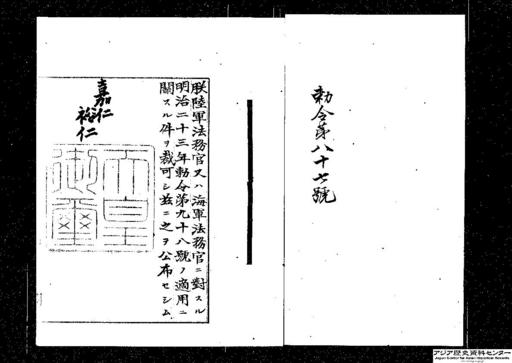 勅令第八十七號
朕陸軍法務官又ハ海軍法務官ニ對スル
明治二十三年勅令第九十八號ノ適用ニ
關スル件ヲ裁可シ茲ニ之ヲ公布セシム
嘉仁
裕仁
天皇
御璽
アジア歴史資料センター
Japan Center for Asian Historical Records